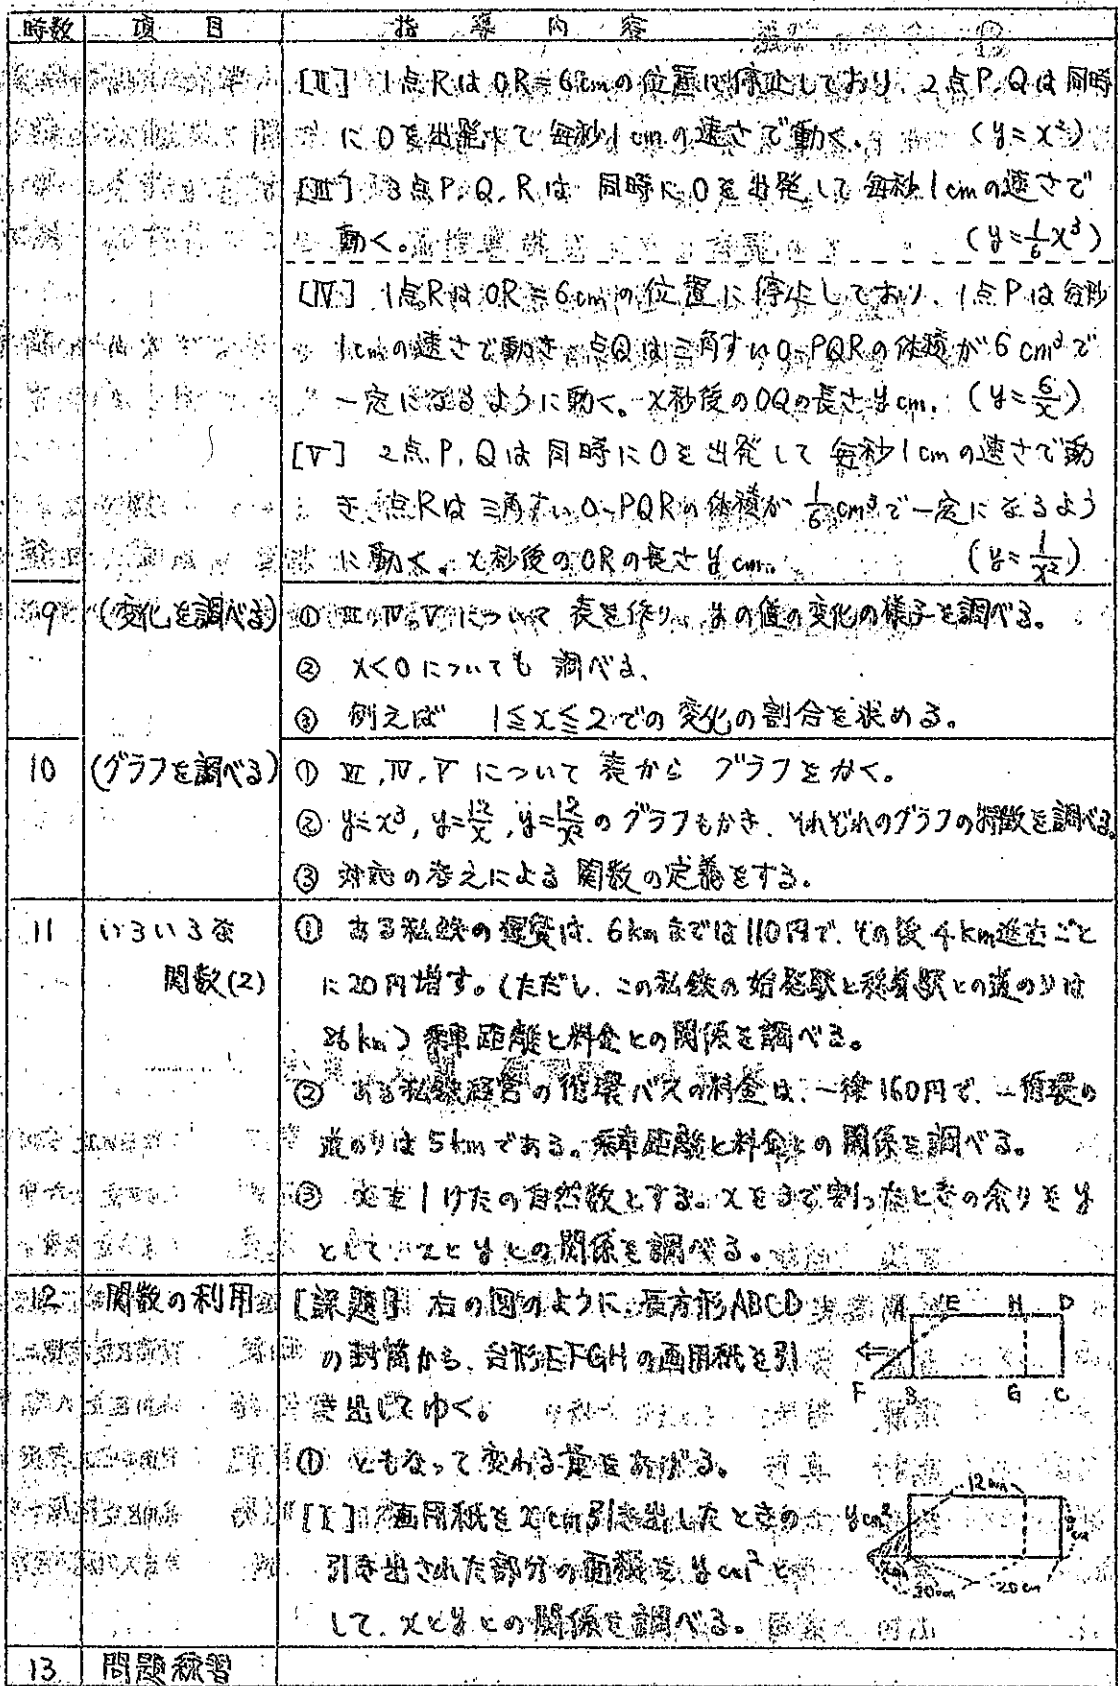 時数 項目 指導内容
[Ⅱ] 1点RはOR=6cmの位置に停止しており、2点P,Qは同時
にOを出発して毎秒1cmの速さで動く。 (y=x²)
[Ⅲ] 3点P,Q,Rは 同時にOを出発して毎秒1cmの速さで
動く。 (y=1/6x³)
[Ⅳ] 1点RはOR=6cmの位置に停止しており、1点Pは毎秒
1cmの速さで動き 点Qは三角すいO-PQRの体積が6cm³で
一定になるように動く。x秒後のOQの長さycm. (y=6/x)
[Ⅴ] 2点P,Qは同時にOを出発して毎秒1cmの速さで動
き、点Rは三角すいO-PQRの体積が1/6cm³で一定になるよう
に動く。x秒後のORの長さycm. (y=1/x²)
9 (変化を調べる) ① Ⅲ,Ⅳ,Ⅴについて 表を作り、yの値の変化の様子を調べる。
② x<0についても 調べる、
③ 例えば 1≦x≦2での変化の割合を求める。
10 (グラフを調べる) ① Ⅲ,Ⅳ,Ⅴ について 表から グラフをかく。
② y=x³, y=12/x, y=12/x² のグラフもかき、それぞれのグラフの特徴を調べる。
③ 対応の考えによる関数の定義をする。
11 いろいろな ① ある私鉄の運賃は、6kmまでは110円で、その後4km進むごと
関数(2) に20円増す。(ただし、この私鉄の始発駅と終着駅との道のりは
26km) 乗車距離と料金との関係を調べる。
② ある私鉄経営の循環バスの料金は、一律160円で、一循環の
道のりは5kmである。乗車距離と料金との関係を調べる。
③ xを1けたの自然数とする。xを3で割ったときの余りをy
として、xとyとの関係を調べる。
12 関数の利用 [課題] 右の図のように、長方形ABCD
の封筒から、台形EFGHの画用紙を引
き出してゆく。
A E H D
F B G C
① ともなって変わる量をあげる。
[Ⅰ] 画用紙をxcm引き出したときの
引き出された部分の面積をycm²と
して、xとyとの関係を調べる。
12cm
ycm²
20cm 20cm
13 問題練習